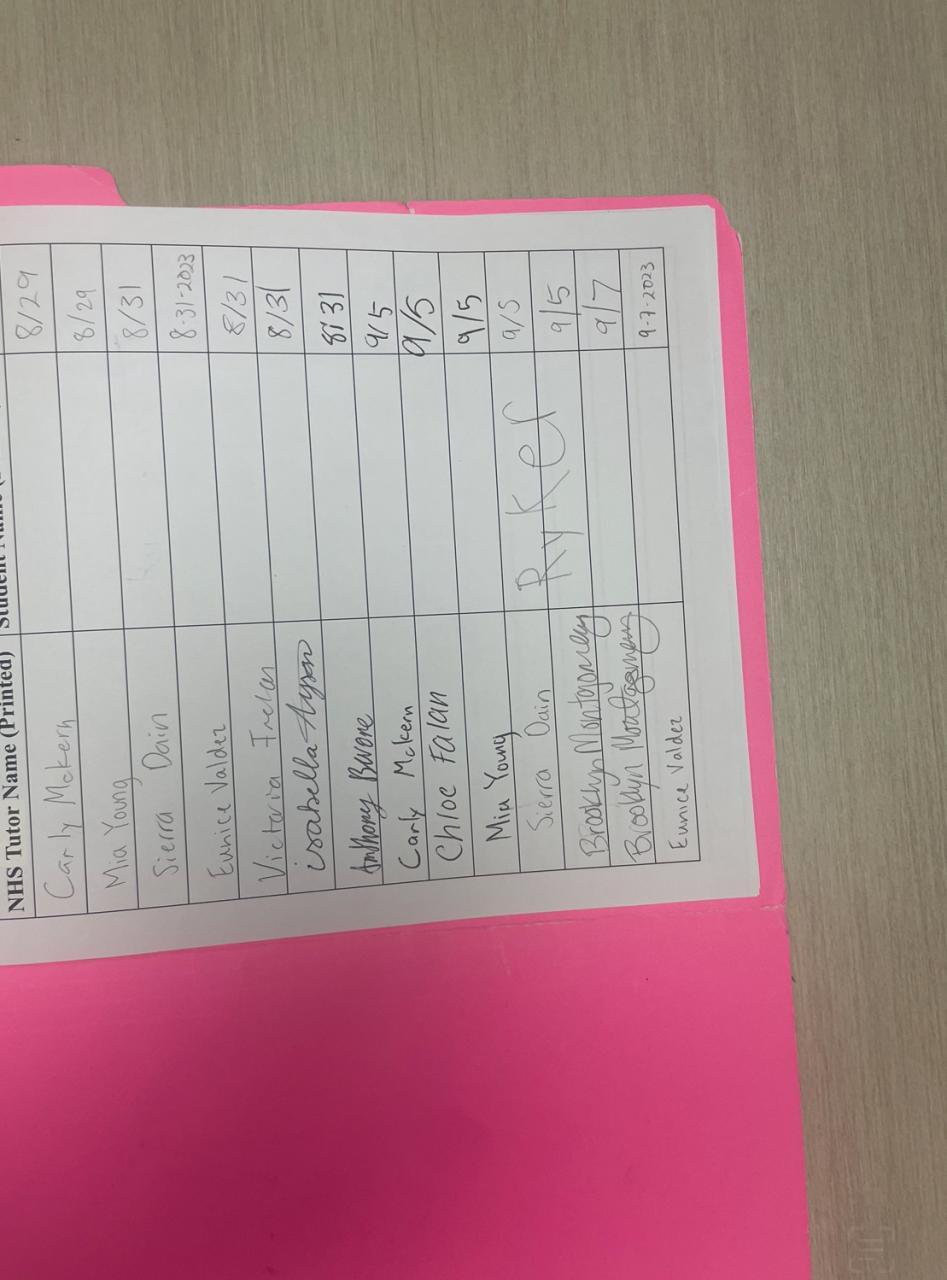 NHS Tutor Name (Printed) Student Name
Carly Mckern 8/29
Mia Young 8/29
Sierra Dain 8/31
Eunice Valdez 8-31-2023
Victoria Irelan 8/31
isabella tyson 8/31
Anthony Barone 8/31
Carly Mckern 9/5
Chloe Falan 9/5
Mia Young 9/5
Sierra Dain Ryker 9/5
Brooklyn Montgomery 9/5
Brooklyn Montgomery 9/7
Eunice Valdez 9-7-2023